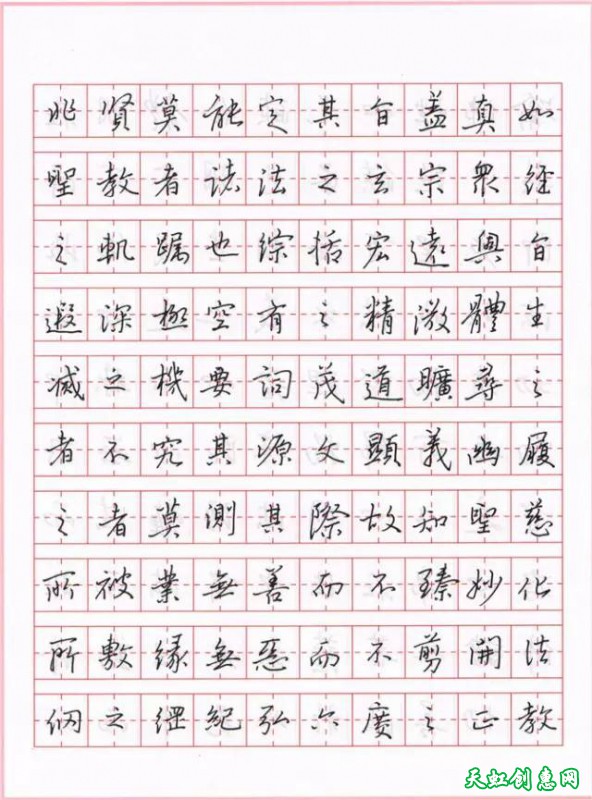 非賢莫能定其旨盖真如
聖教者諸法之玄宗衆經
之軌躅也綜括宏遠奧旨
遐深極空有之精微體生
滅之機要詞茂道曠尋之
者不究其源文顯義幽履
之者莫測其際故知聖慈
所被業無善而不臻妙化
所敷緣無惡而不剪開法
網之綱紀弘六度之正教
天虹创惠网